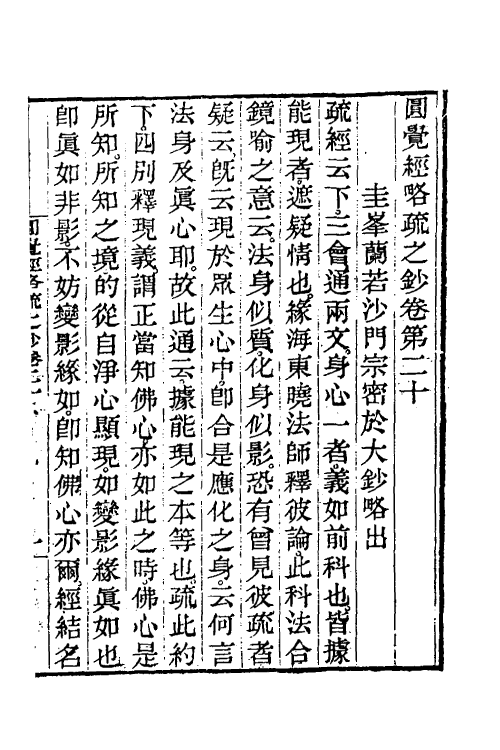 圓覺經略疏之鈔卷第二十
圭峯蘭若沙門宗密於大鈔略出
疏經云下。三會通兩文。身心一者。義如前科也。皆據
能現者。遮疑情也。緣海東曉法師釋彼論。此科法合
鏡喻之意云。法身似質。化身似影。恐有曾見彼疏者
疑云既云現於眾生心中。卽合是應化之身。云何言
法身及眞心耶。故此通云。據能現之本等也。疏此約
下。四別釋現義。謂正當知佛心。亦如此之時。佛心是
所知。所知之境的從自淨心顯現。如變影緣眞如也
卽眞如非影。不妨變影緣如。卽知佛心亦爾。經結名
圓覺經略疏之鈔卷二十